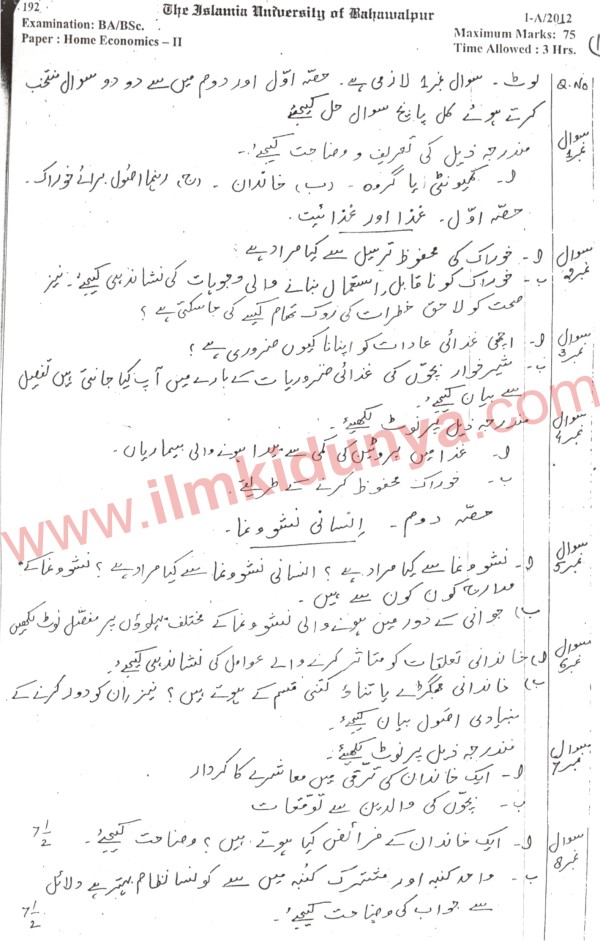 192
The Islamia University of Bahawalpur
1-A/2012
Examination: BA/BSc.
Maximum Marks: 75
Paper : Home Economics – II
Time Allowed : 3 Hrs.
Q.No نوٹ ۔ سوال نمبر 1 لازمی ہے۔ حصہ اوّل اور دوم میں سے دو دو سوال منتخب
کرتے ہوئے کل پانچ سوال حل کیجیئے
سوال نمبر 1 مندرجہ ذیل کی تعریف و وضاحت کیجیۓ۔
ا۔ کمیونٹی یا گروہ ۔ (ب) خاندان ۔ (ج) رہنما اصول برائے خوراک۔
حصہ اوّل ۔ غذا اور غذائیت
سوال نمبر 2 ا۔ خوراک کی محفوظ ترسیل سے کیا مراد ہے
ب۔ خوراک کو ناقابل استعمال بنانے والی وجوہات کی نشاندہی کیجیۓ۔ نیز
صحت کو لاحق خطرات کی روک تھام کیسے کی جاسکتی ہے؟
سوال نمبر 3 ا۔ اچھی غذائی عادات کو اپنانا کیوں ضروری ہے؟
ب۔ شیرخوار بچوں کی غذائی ضروریات کے بارے میں آپ کیا جانتی ہیں تفصیل
سے بیان کیجیۓ۔
سوال نمبر 4 مندرجہ ذیل پر نوٹ لکھیۓ۔
ا۔ غذا میں پروٹین کی کمی سے پیدا ہونے والی بیماریاں۔
ب۔ خوراک محفوظ کرنے کے طریقے۔
www.ilmkidunya.com
حصہ دوم ۔ انسانی نشوونما۔
سوال نمبر 5 ا۔ نشوونما سے کیا مراد ہے؟ انسانی نشوونما سے کیا مراد ہے؟ نشوونما کے
مدارج کون کون سے ہیں۔
ب) جوانی کے دور میں ہونے والی نشوونما کے مختلف پہلوؤں پر مفصّل نوٹ لکھیں
سوال نمبر 6 ا) خاندانی تعلقات کو متاثر کرنے والے عوامل کی نشاندہی کیجیۓ۔
ب) خاندانی جھگڑے یا تناؤ کتنی قسم کے ہوتے ہیں؟ نیز ان کو دور کرنے کے
بنیادی اصول بیان کیجیۓ۔
سوال نمبر 7 مندرجہ ذیل پر نوٹ لکھیۓ۔
ا۔ ایک خاندان کی ترقی میں معاشرے کا کردار
ب۔ بچوں کی والدین سے توقعات
سوال نمبر 8 ا۔ ایک خاندان کے فرائض کیا ہوتے ہیں؟ وضاحت کیجیۓ۔ 7½
ب۔ واحد کنبہ اور مشترک کنبہ میں سے کونسا نظام بہتر ہے دلائل
سے جواب کی وضاحت کیجیۓ۔ 7½